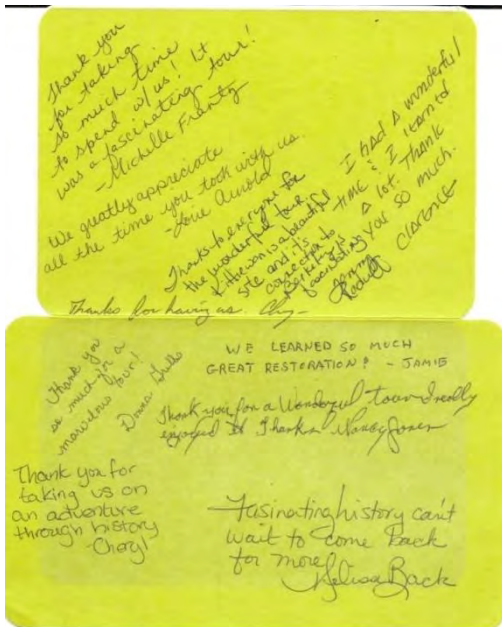 Thank you
for taking
so much time
to spend w/us! It
was a fascinating tour!
-Michelle Frantz
We greatly appreciate
all the time you took with us.
-Lorie Arnold
Thanks to everyone for
the wonderful tour.
is a beautiful
site and it's
connection to
is
fascinating
I had a wonderful
time & I learned
a lot. Thank
you so much.
Clarence
Thanks for having us.
Thank you
so much for a
marvelous tour!
Donna
WE LEARNED SO MUCH
GREAT RESTORATION! - JAMIE
Thank you for a Wonderful tour I really
enjoyed it Thanks Nancy Jones
Thank you for
taking us on
an adventure
through history
-Cheryl
Fasinating history can't
wait to come back
for more!
Melissa Back